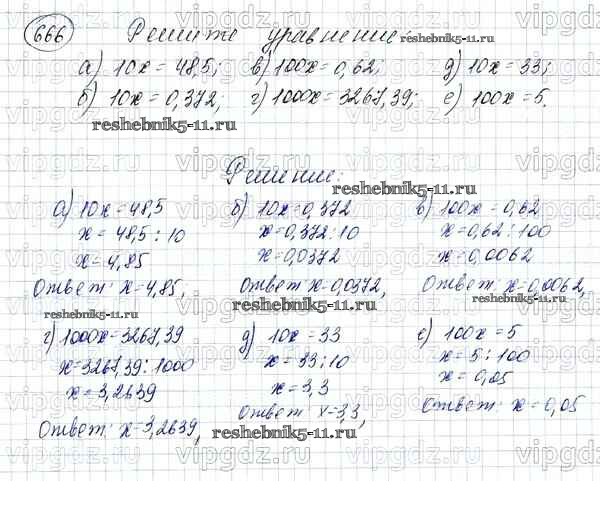 666 Решите уравнение:
а) 10x = 48,5; в) 100x = 0,62; д) 10x = 33;
б) 10x = 0,372; г) 1000x = 3267,39; е) 100x = 5.
reshebnik5-11.ru
Решение:
reshebnik5-11.ru
а) 10x = 48,5 б) 10x = 0,372 в) 100x = 0,62
x = 48,5 : 10 x = 0,372 : 10 x = 0,62 : 100
x = 4,85 x = 0,0372 x = 0,0062
Ответ: x = 4,85, Ответ x = 0,0372, Ответ: x = 0,0062,
reshebnik5-11.ru reshebnik5-11.ru reshebnik5-11.ru
г) 1000x = 3267,39 д) 10x = 33 е) 100x = 5
x = 3267,39 : 1000 x = 33 : 10 x = 5 : 100
x = 3,2639 x = 3,3 x = 0,05
Ответ: x = 3,2639, Ответ x = 3,3, Ответ: x = 0,05
reshebnik5-11.ru
vipgdz.ru